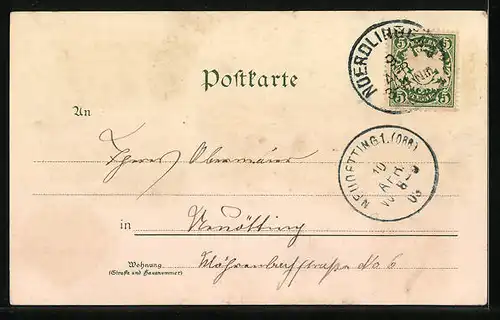 NOERDLINGEN
5 5
5 5
Postkarte
An
NEUOETTING 1. (OBB)
10
APR
03
Theres Obermaier
in Neuötting
Wohnung
(Straße und Hausnummer)
Möhrenbachstraße No 6